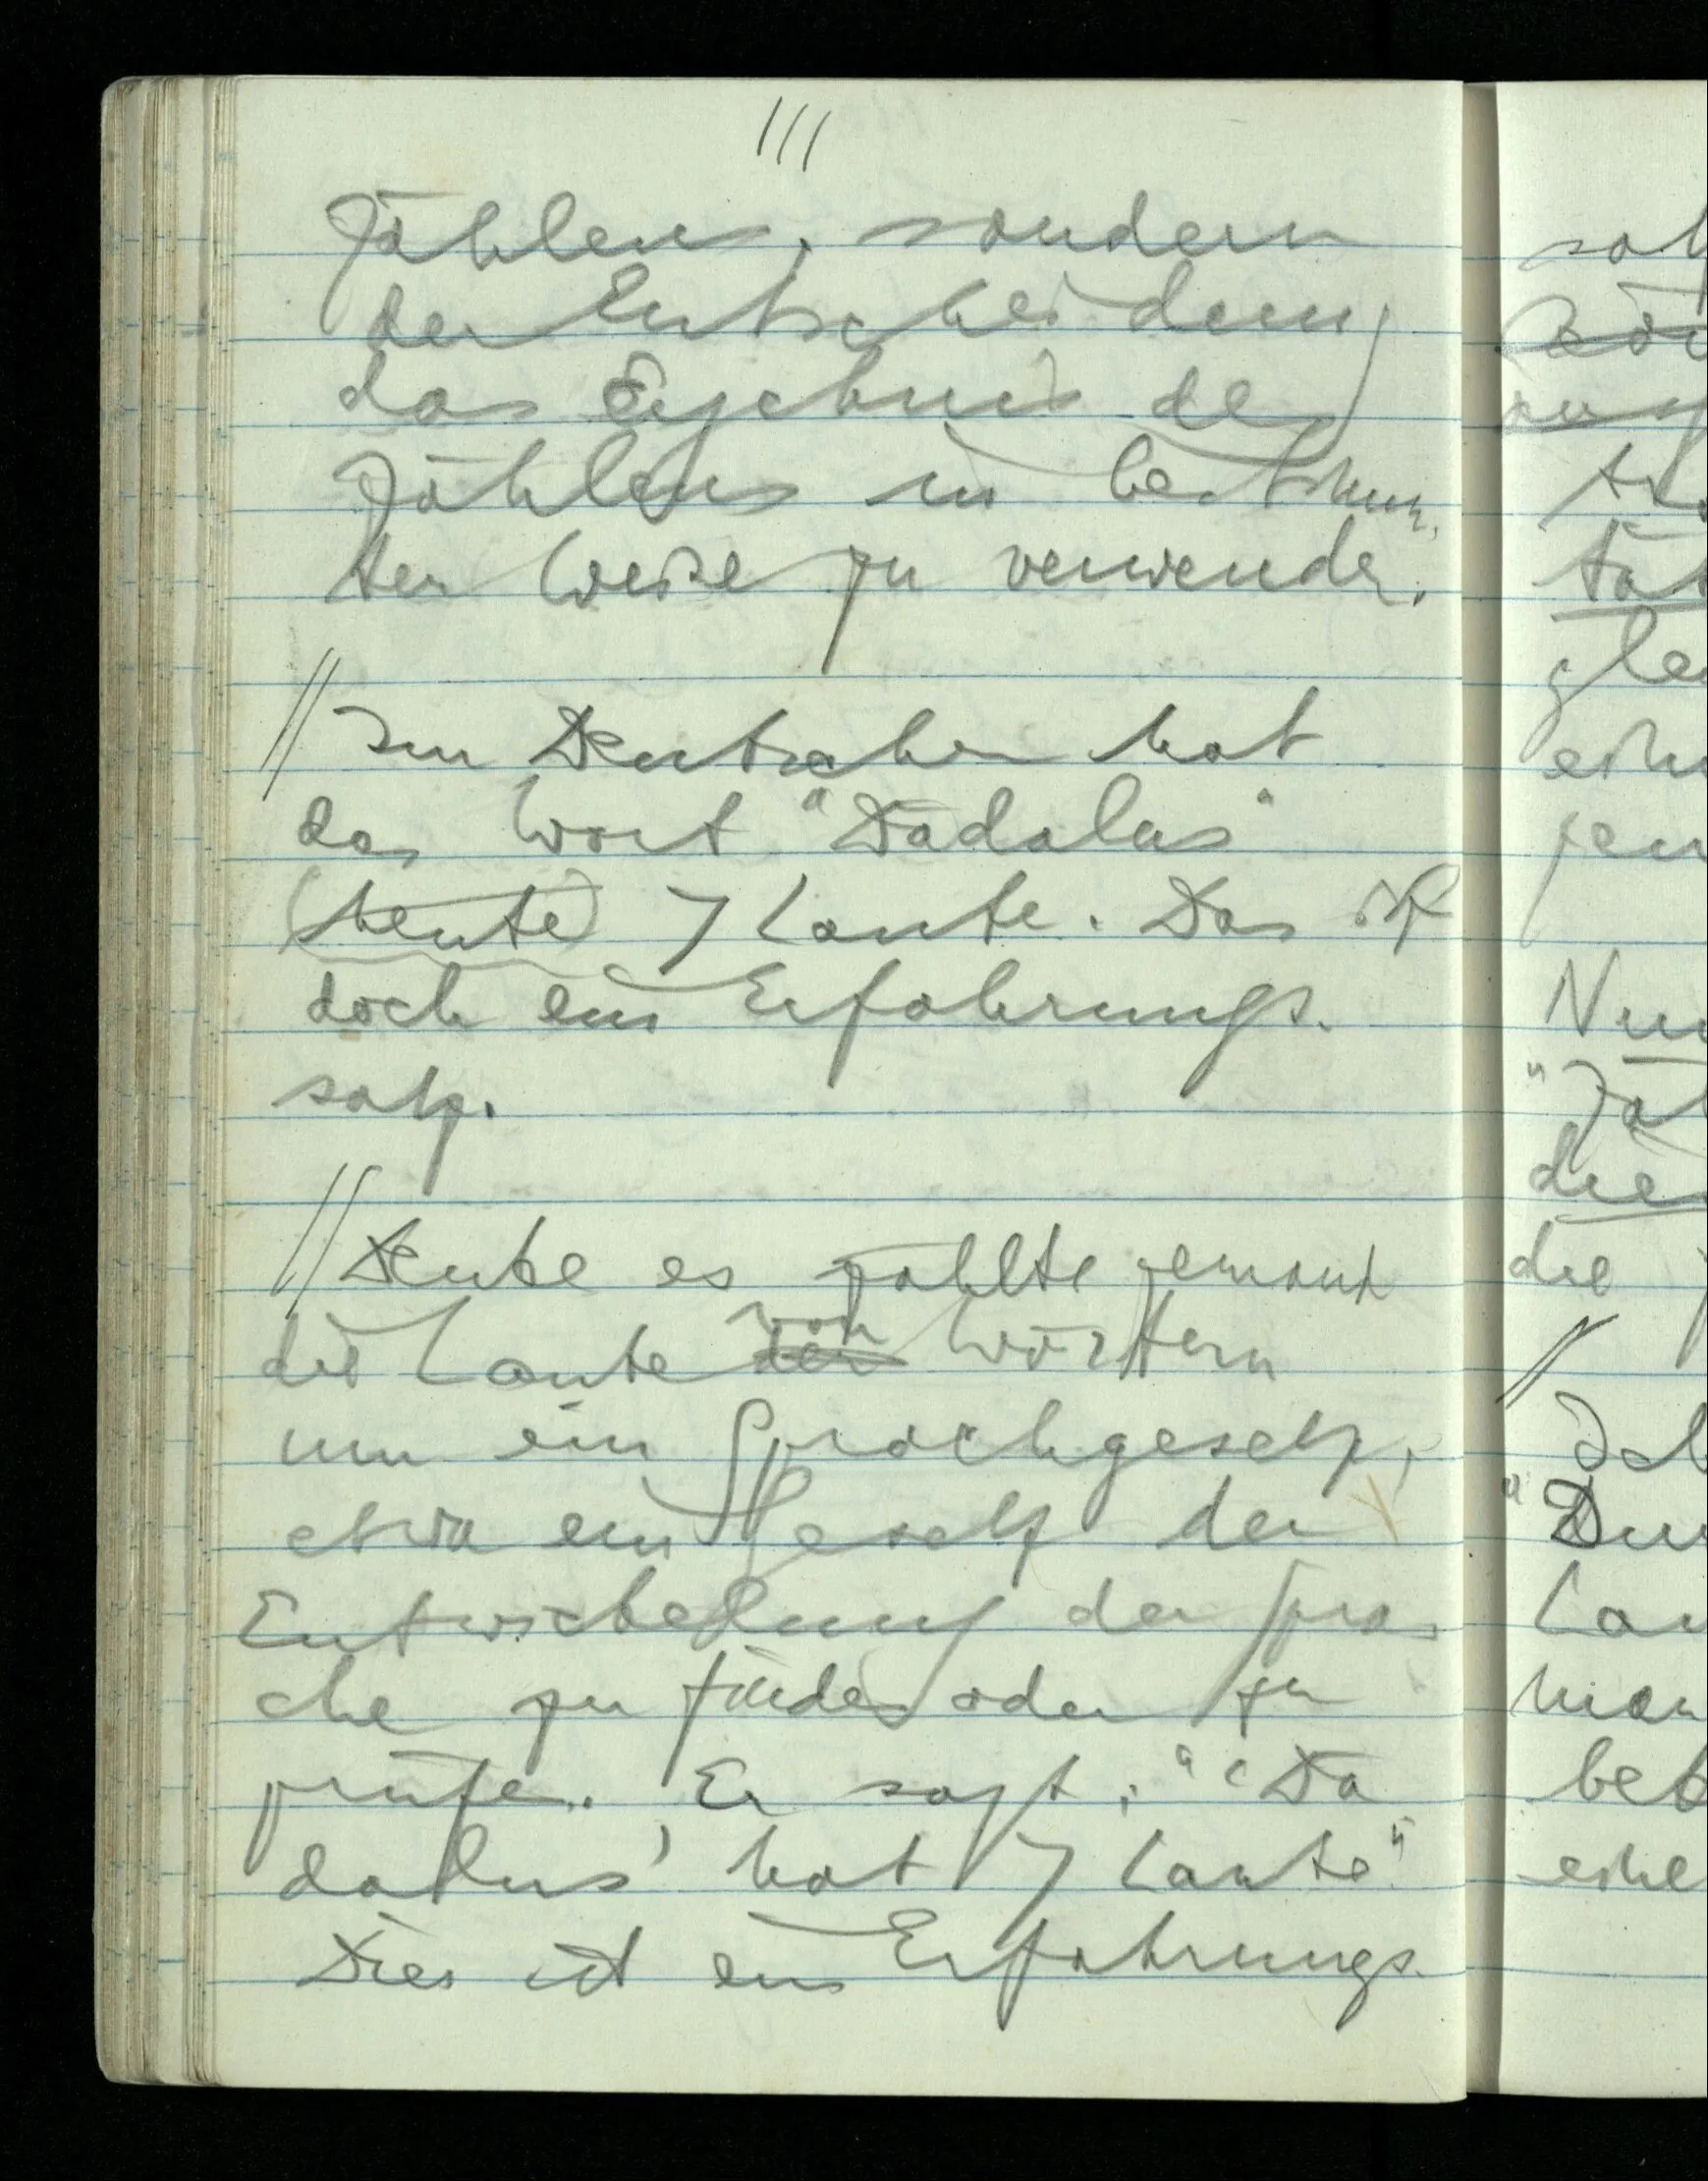 111
Zählens, sondern
der Entscheidung
das Ergebnis des
Zählens in bestimm-
ter Weise zu verwenden.
// Im Deutschen hat
das Wort "Dädalus"
(heute) 7 Laute. Das ist
doch ein Erfahrungs-
satz.
// Denke es zählte jemand
die Laute der von Wörtern
um ein Sprachgesetz,
etwa ein Gesetz der
Entwickelung der Spra-
che zu finden oder zu
prüfen. Er sagt: "'Dä
dalus' hat 7 Laute"
Dies ist ein Erfahrungs-